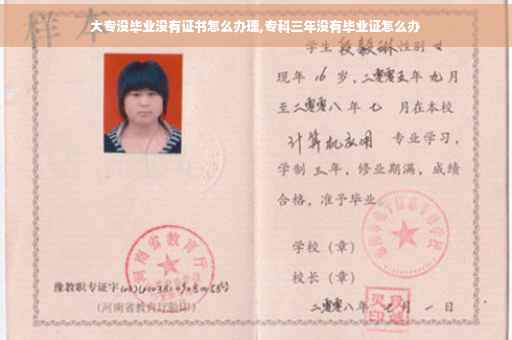 大专没毕业没有证书怎么办理,专科三年没有毕业证怎么办
样本
学生 段毅琳 性别 女
现年 16 岁，二零零五年 九月
至二零零八年 七 月在本校
计算机应用 专业学习，
学制 三 年，修业期满，成绩
合格，准予毕业
学校（章）
校长（章）
二零零八年 七 月 一 日
河南省教育厅
豫教职专证字
(河南省教育厅验印)